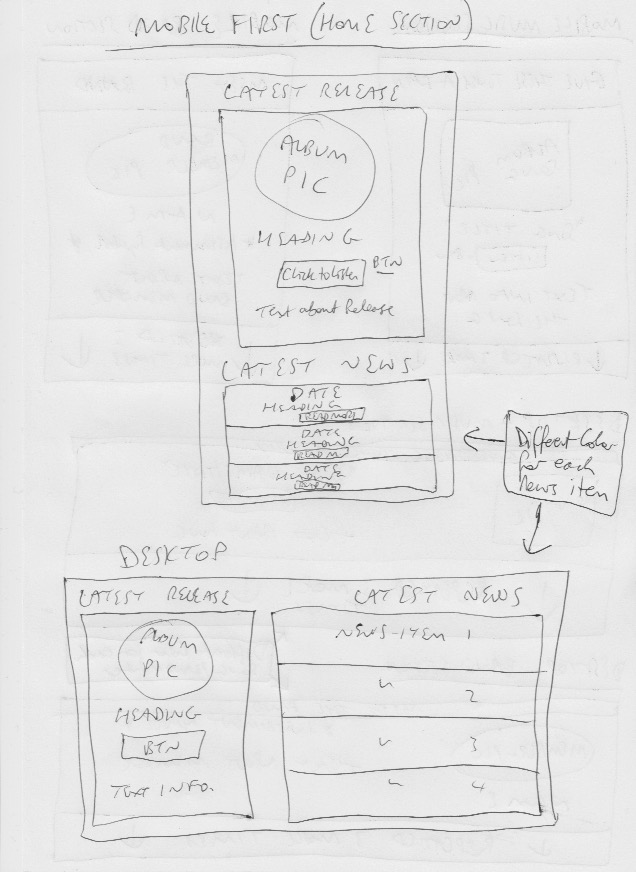 MOBILE FIRST (HOME SECTION)
LATEST RELEASE
ALBUM
PIC
HEADING
Click to listen
BTN
Text about Release
LATEST NEWS
DATE
HEADING
READ MORE
DATE
HEADING
READ M
DATE
HEADING
READ M
Different Color
for each
News item
DESKTOP
LATEST RELEASE
ALBUM
PIC
HEADING
BTN
TEXT INFO.
LATEST NEWS
NEWS-ITEM 1
" 2
" 3
" 4